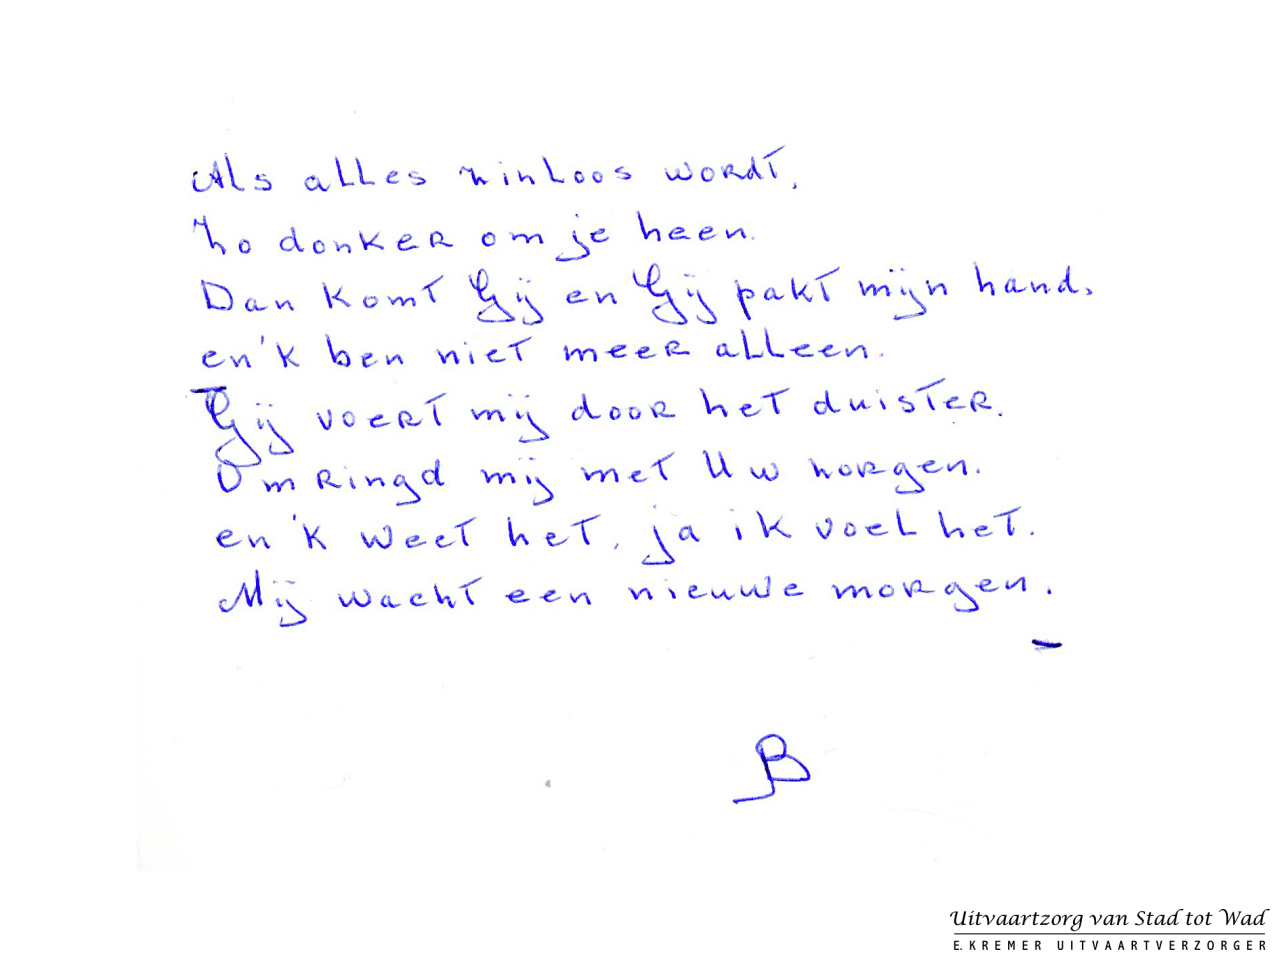 Als alles zinloos wordt,
zo donker om je heen.
Dan komt Gij en Gij pakt mijn hand.
en 'k ben niet meer alleen.
Gij voert mij door het duister.
Omringd mij met Uw zorgen.
en 'k weet het, ja ik voel het.
Mij wacht een nieuwe morgen.
B
Uitvaartzorg van Stad tot Wad
E. KREMER UITVAARTVERZORGER